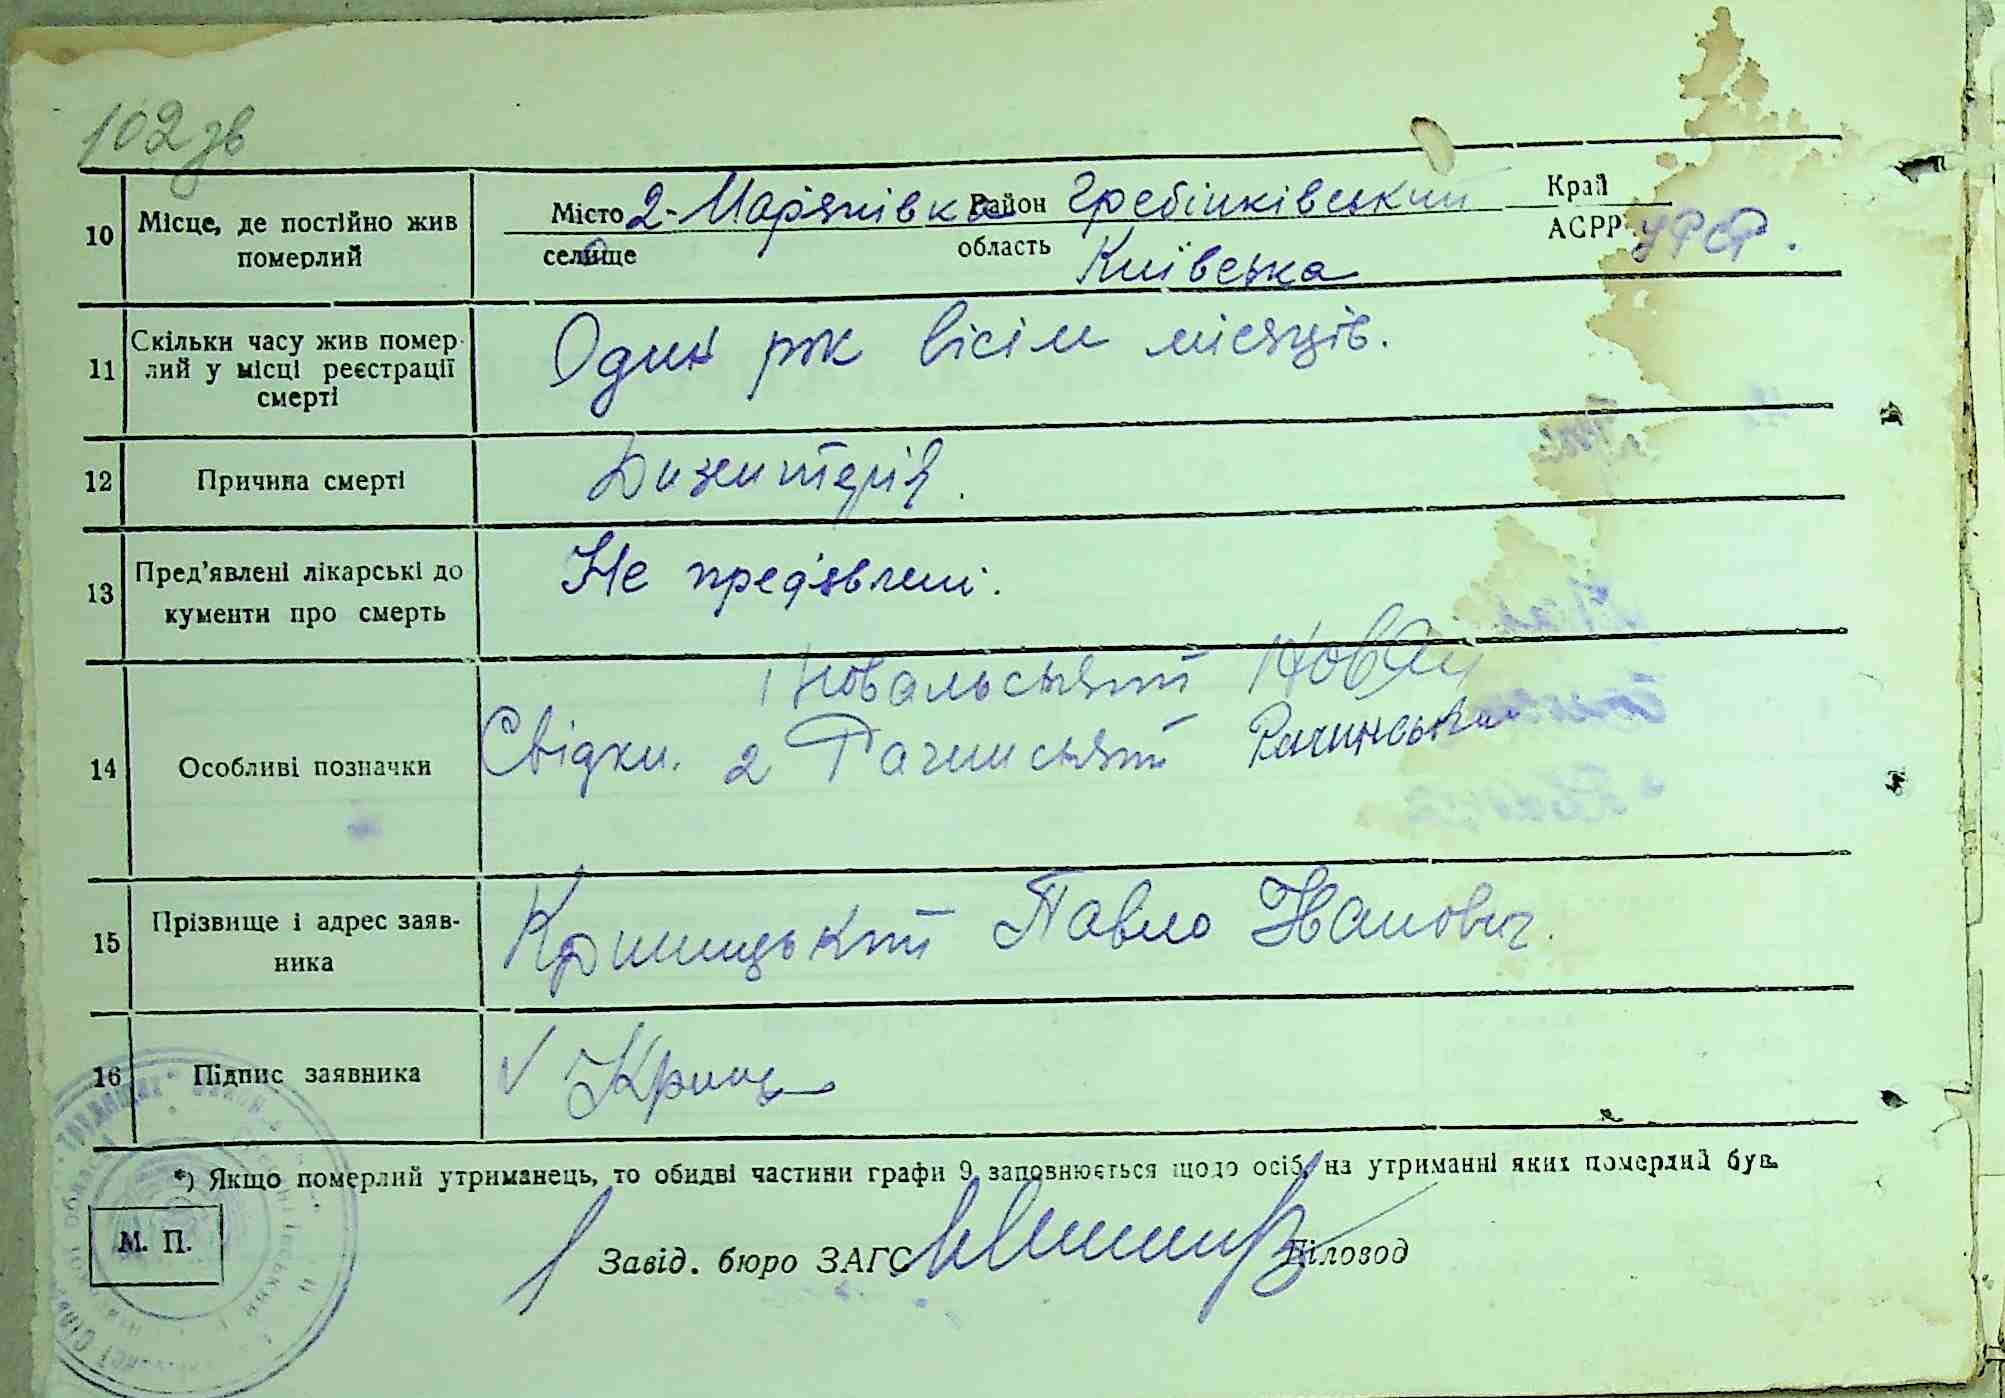 102 зв
10 Місце, де постійно жив померлий
Місто 2-Мар'янівка Район Гребінківський Край
селище область Київська АСРР УРСР.
11 Скільки часу жив помер-
лий у місці реєстрації
смерті
Один рік вісім місяців.
12 Причина смерті
Дизентерія.
13 Пред'явлені лікарські до
кументи про смерть
Не пред'явлені.
14 Особливі позначки
1 Ковальський
Свідки. 2 Рачинський Рачинський
15 Прізвище і адрес заяв-
ника
Криницький Павло Іванович.
16 Підпис заявника
√ Криц
*) Якщо померлий утриманець, то обидві частини графи 9 заповнюється щодо осіб, на утриманні яких померлий був.
М. П.
Завід. бюро ЗАГС Діловод